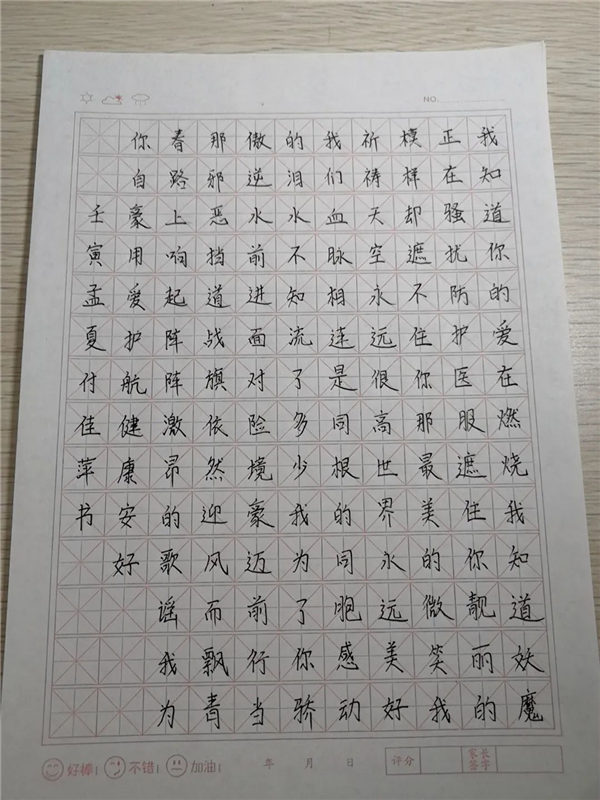 我知道你的爱在燃烧我知道妖魔
正在骚扰防护医服遮住你靓丽的
模样却遮不住你那最美的微笑我
祈祷天空永远很高世界永远美好
我们血脉相连是同根的同胞感动
的泪水不知流了多少我为了你骄
傲逆水前进面对险境豪迈前行当
那邪恶挡道战旗依然迎风而飘青
看路上响起阵阵激昂的歌谣我为
你自豪用爱护航健康安好
壬寅孟夏付佳萍书
NO.
好棒! 不错! 加油! 年 月 日 评分 家长签字